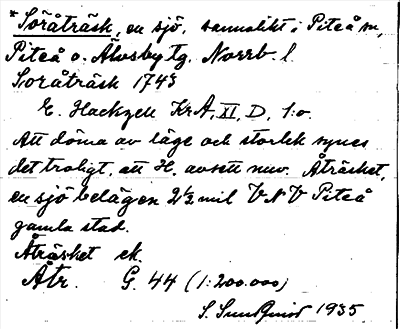 *Soråträsk, en sjö, sannolikt i Piteå sn,
Piteå o. Älvsby tg. Norrb. l.
Soråträsk 1743
E. Hackzell KrA, XI, D, 1:o.
Att döma av läge och storlek synes
det troligt, att H. avsett nuv. Åträsket,
en sjö belägen 2½ mil VNV Piteå
gamla stad.
Åträsket ek.
Åtr. G. 44 (1:200.000)
S. Sundqvist 1935.